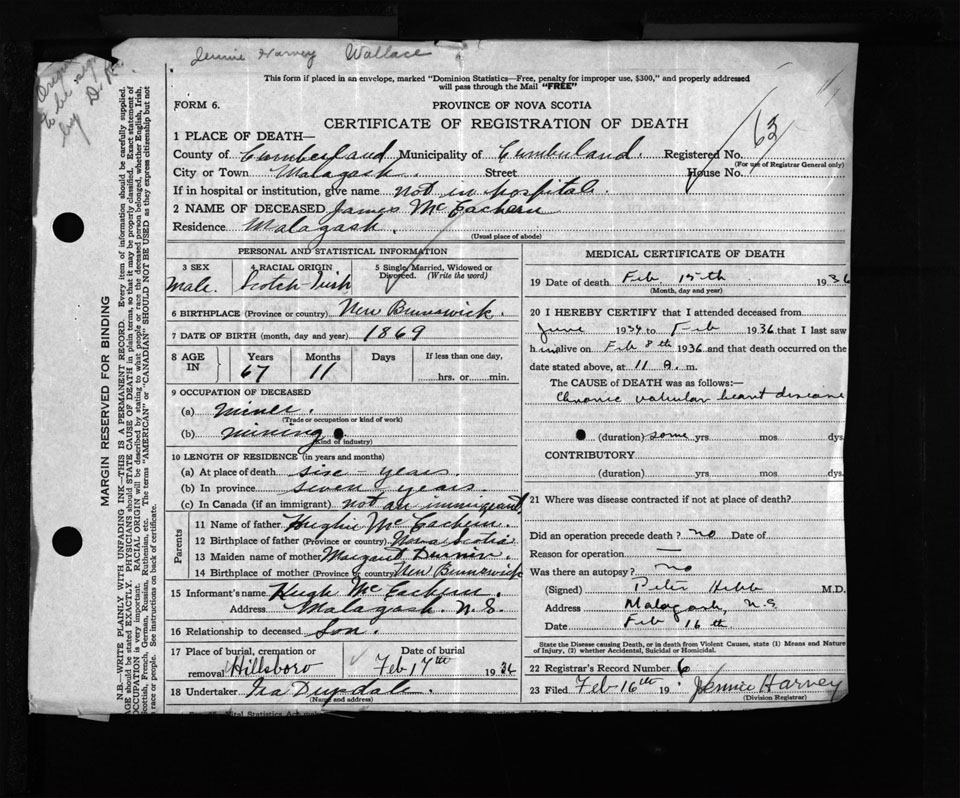 Jennie Harvey Wallace
to be
by
This form if placed in an envelope, marked "Dominion Statistics—Free, penalty for improper use, $300," and properly addressed
will pass through the Mail "FREE"
FORM 6.
PROVINCE OF NOVA SCOTIA
CERTIFICATE OF REGISTRATION OF DEATH
63
1 PLACE OF DEATH—
County of Cumberland Municipality of Cumberland. Registered No.
(For use of Registrar General only)
City or Town Malagash. Street House No.
If in hospital or institution, give name not in hospital.
2 NAME OF DECEASED James McEachern
Residence Malagash.
(Usual place of abode)
PERSONAL AND STATISTICAL INFORMATION
3 SEX 4 RACIAL ORIGIN 5 Single, Married, Widowed or
Divorced. (Write the word)
Male. Scotch Irish
6 BIRTHPLACE (Province or country) New Brunswick.
7 DATE OF BIRTH (month, day and year) 1869
8 AGE IN Years Months Days If less than one day,
67 11 hrs. or min.
9 OCCUPATION OF DECEASED
(a) miner.
(Trade or occupation or kind of work)
(b) mining
(Kind of industry)
10 LENGTH OF RESIDENCE (in years and months)
(a) At place of death six - years.
(b) In province seven years.
(c) In Canada (if an immigrant) not an immigrant.
Parents
11 Name of father Hughie McEachern.
12 Birthplace of father (Province or country) Nova Scotia
13 Maiden name of mother Margaret
14 Birthplace of mother (Province or country) New Brunswick
15 Informant's name Hugh McEachern.
Address Malagash. N.S.
16 Relationship to deceased Son.
17 Place of burial, cremation or Date of burial
removal Hillsboro Feb 17th 1936
18 Undertaker Ira
(Name and address)
MEDICAL CERTIFICATE OF DEATH
19 Date of death Feb. 15th 1936
(Month, day and year)
20 I HEREBY CERTIFY that I attended deceased from
June 1934 to Feb 1936 that I last saw
him alive on Feb 8th 1936 and that death occurred on the
date stated above, at 11 a. m.
The CAUSE of DEATH was as follows:—
Chronic valvular heart disease
(duration) some yrs. mos. dys.
CONTRIBUTORY
(duration) yrs. mos. dys.
21 Where was disease contracted if not at place of death?
Did an operation precede death? no Date of
Reason for operation —
Was there an autopsy? no
(Signed) Peter M.D.
Address Malagash, N.S
Date Feb 16th
State the Disease causing Death, or in Death from Violent Causes, state (1) Means and Nature
of Injury, (2) whether Accidental, Suicidal or Homicidal.
22 Registrar's Record Number 6
23 Filed Feb 16th 19 Jennie Harvey
(Division Registrar)
MARGIN RESERVED FOR BINDING
N.B.—WRITE PLAINLY WITH UNFADING INK—THIS IS A PERMANENT RECORD. Every item of information should be carefully supplied.
AGE should be stated EXACTLY. PHYSICIANS should STATE CAUSE OF DEATH in plain terms, so that it may be properly classified. Exact statement of
OCCUPATION is very important. RACIAL ORIGIN will be described by stating to what people or race the deceased person belonged, whether English, Irish,
Scottish, French, German, Russian, Ruthenian, etc. The terms "AMERICAN" or "CANADIAN" SHOULD NOT BE USED as they express citizenship but not
race or people. See instructions on back of certificate.